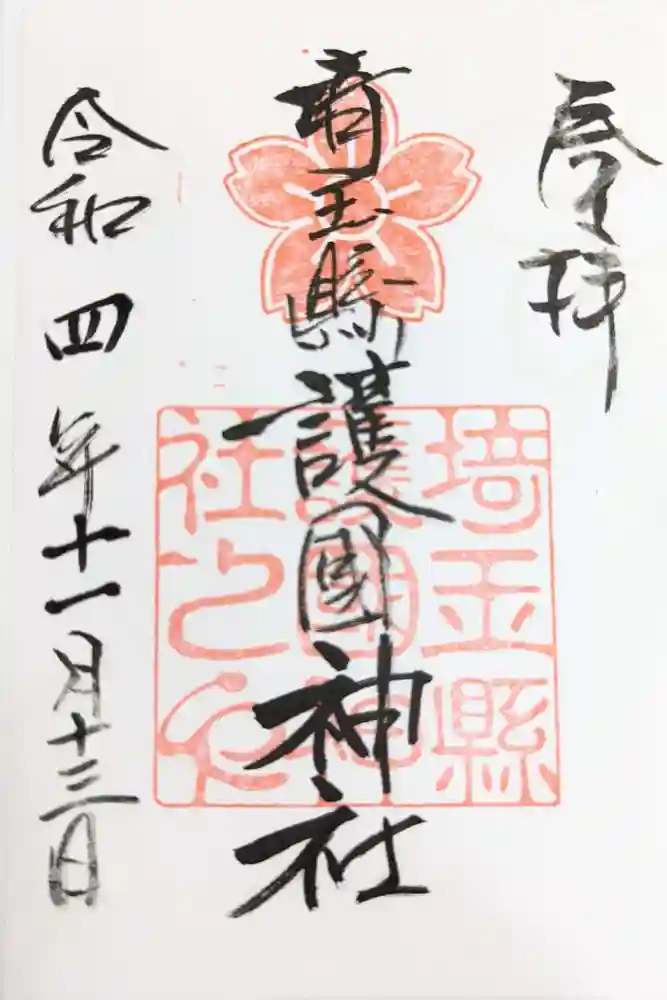 奉拝
埼玉縣護國神社
埼玉縣
護國神
社之印
令和四年十一月十三日